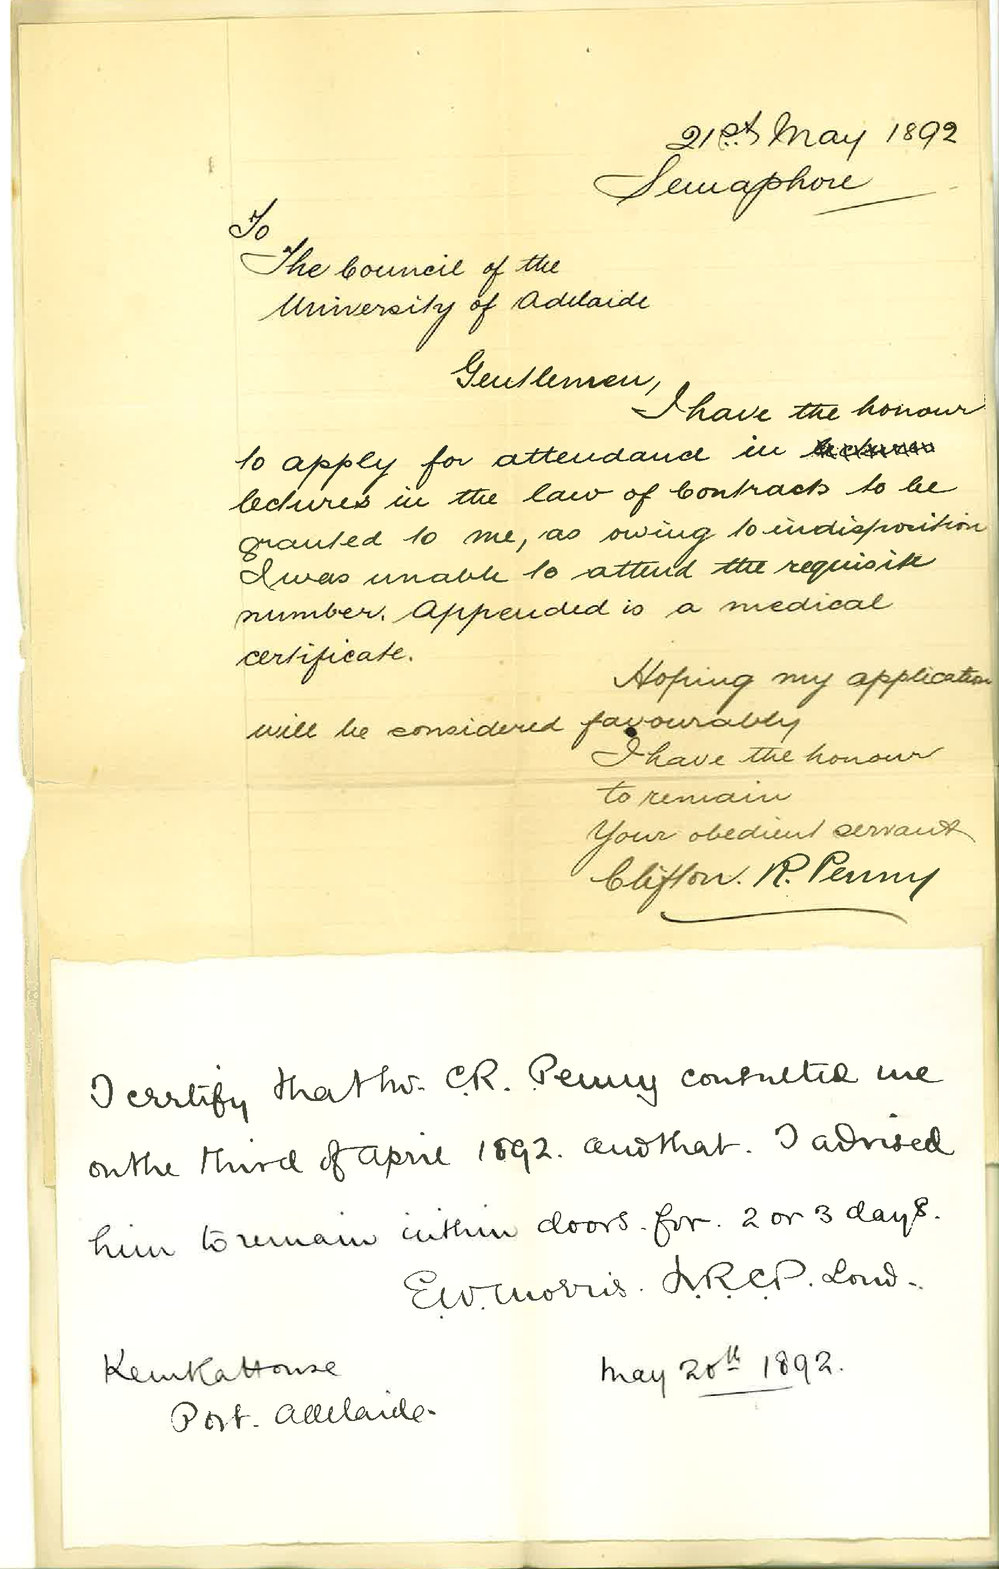 21st May 1892
Semaphore
To
The Council of the
University of Adelaide
Gentlemen,
I have the honour
to apply for attendance in
lectures in the law of Contracts to be
granted to me, as owing to indisposition
I was unable to attend the requisite
number. Appended is a medical
certificate.
Hoping my application
will be considered favourably
I have the honour
to remain
Your obedient servant
Clifton. R. Penny
I certify that Mr. C.R. Penny consulted me
on the third of April 1892. and that. I advised
him to remain within doors. for. 2 or 3 days.
E.W. Morris. L.R.C.P. Lond.
House
May 20th 1892.
Port. Adelaide.